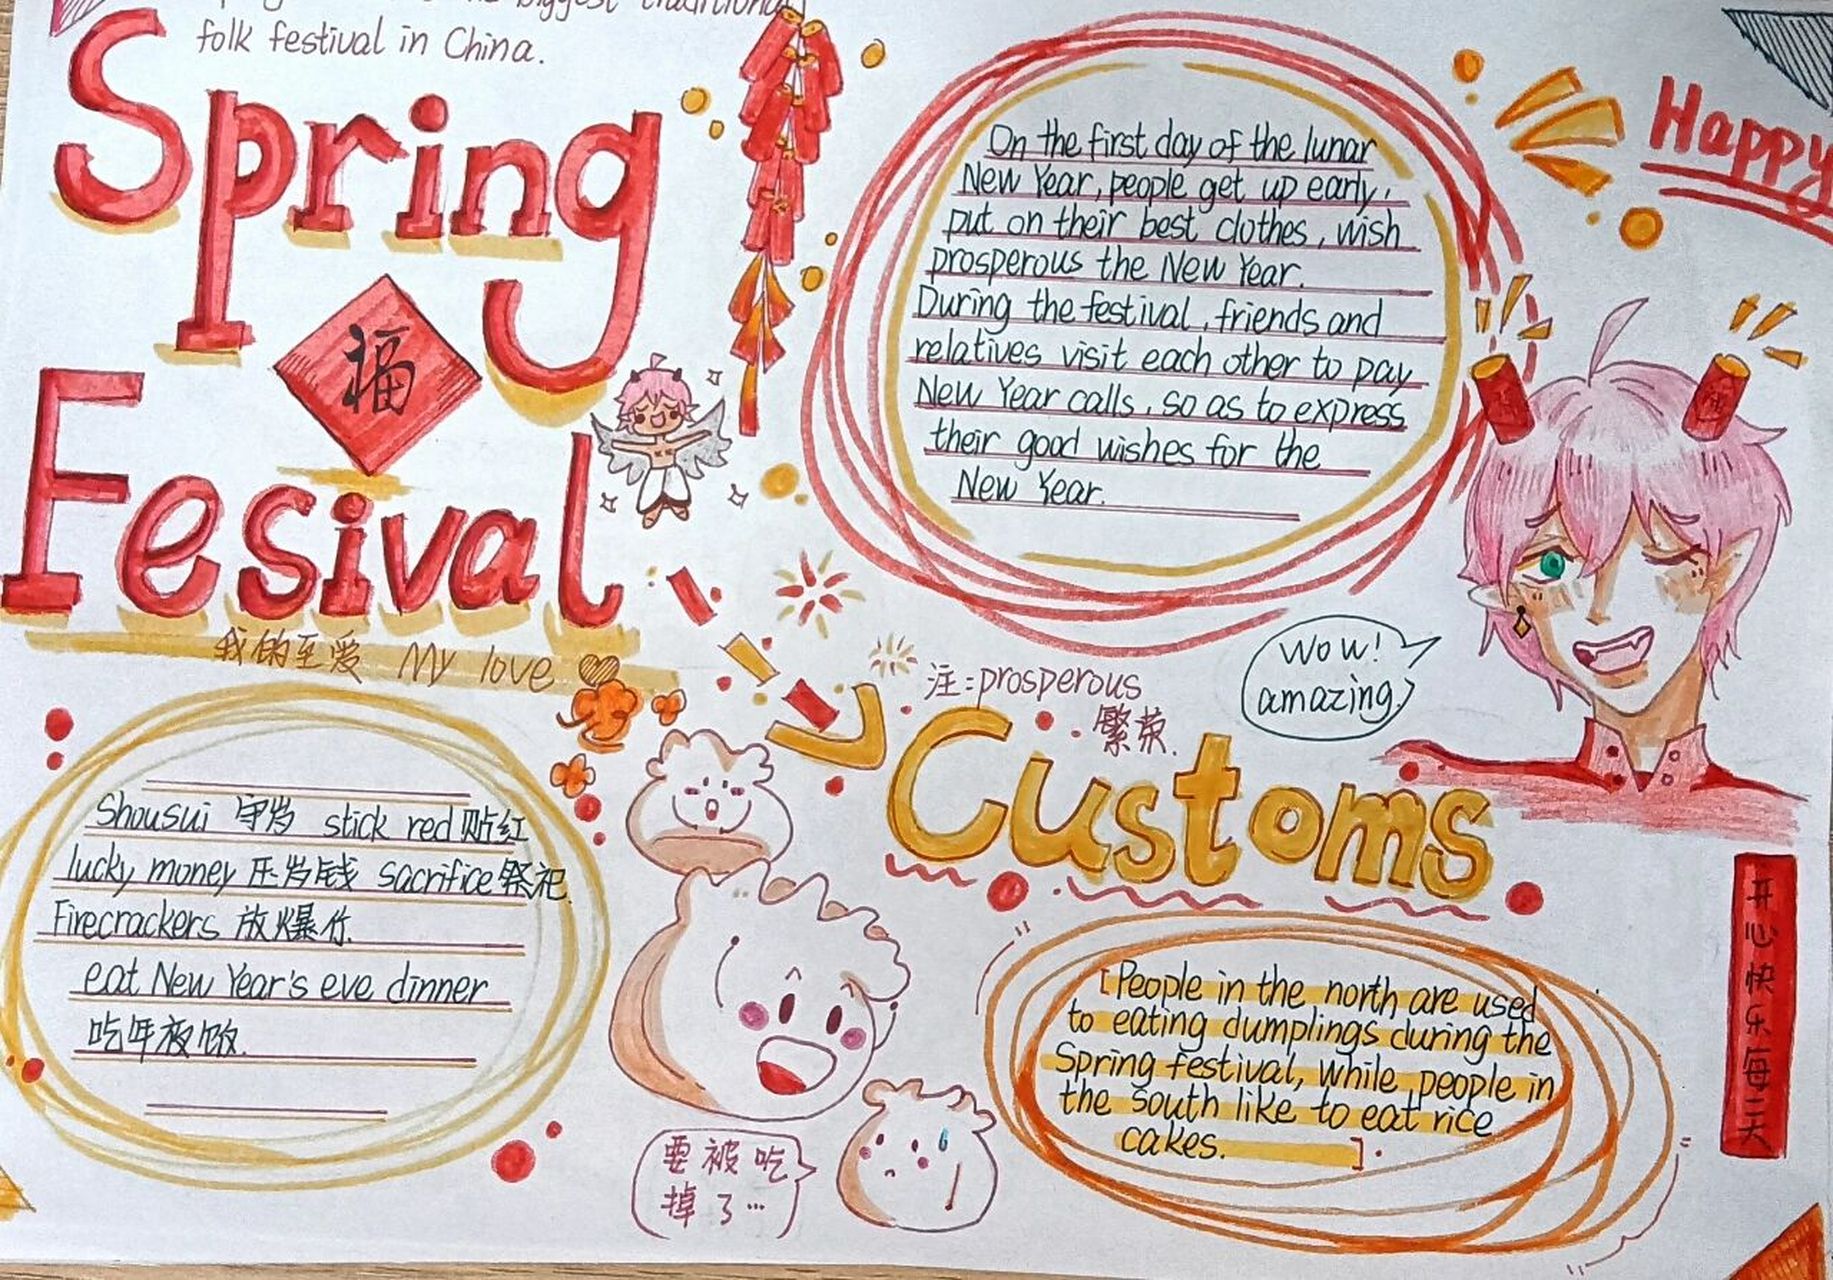 biggest traditional
folk festival in China.
Spring
福
Fesival
我的至爱 My love
On the first day of the lunar
New Year, people get up early,
put on their best clothes, wish
prosperous the New Year.
During the festival, friends and
relatives visit each other to pay
New Year calls, so as to express
their good wishes for the
New Year.
Happy
Wow!
amazing
注:prosperous
繁荣.
Customs
Shousui 守岁 stick red 贴红
lucky money 压岁钱 sacrifice 祭祀.
Firecrackers 放爆竹.
eat New Year's eve dinner
吃年夜饭.
要被吃
掉了...
[People in the north are used
to eating dumplings during the
Spring festival, while people in
the South like to eat rice
cakes. ].
开心快乐每一天